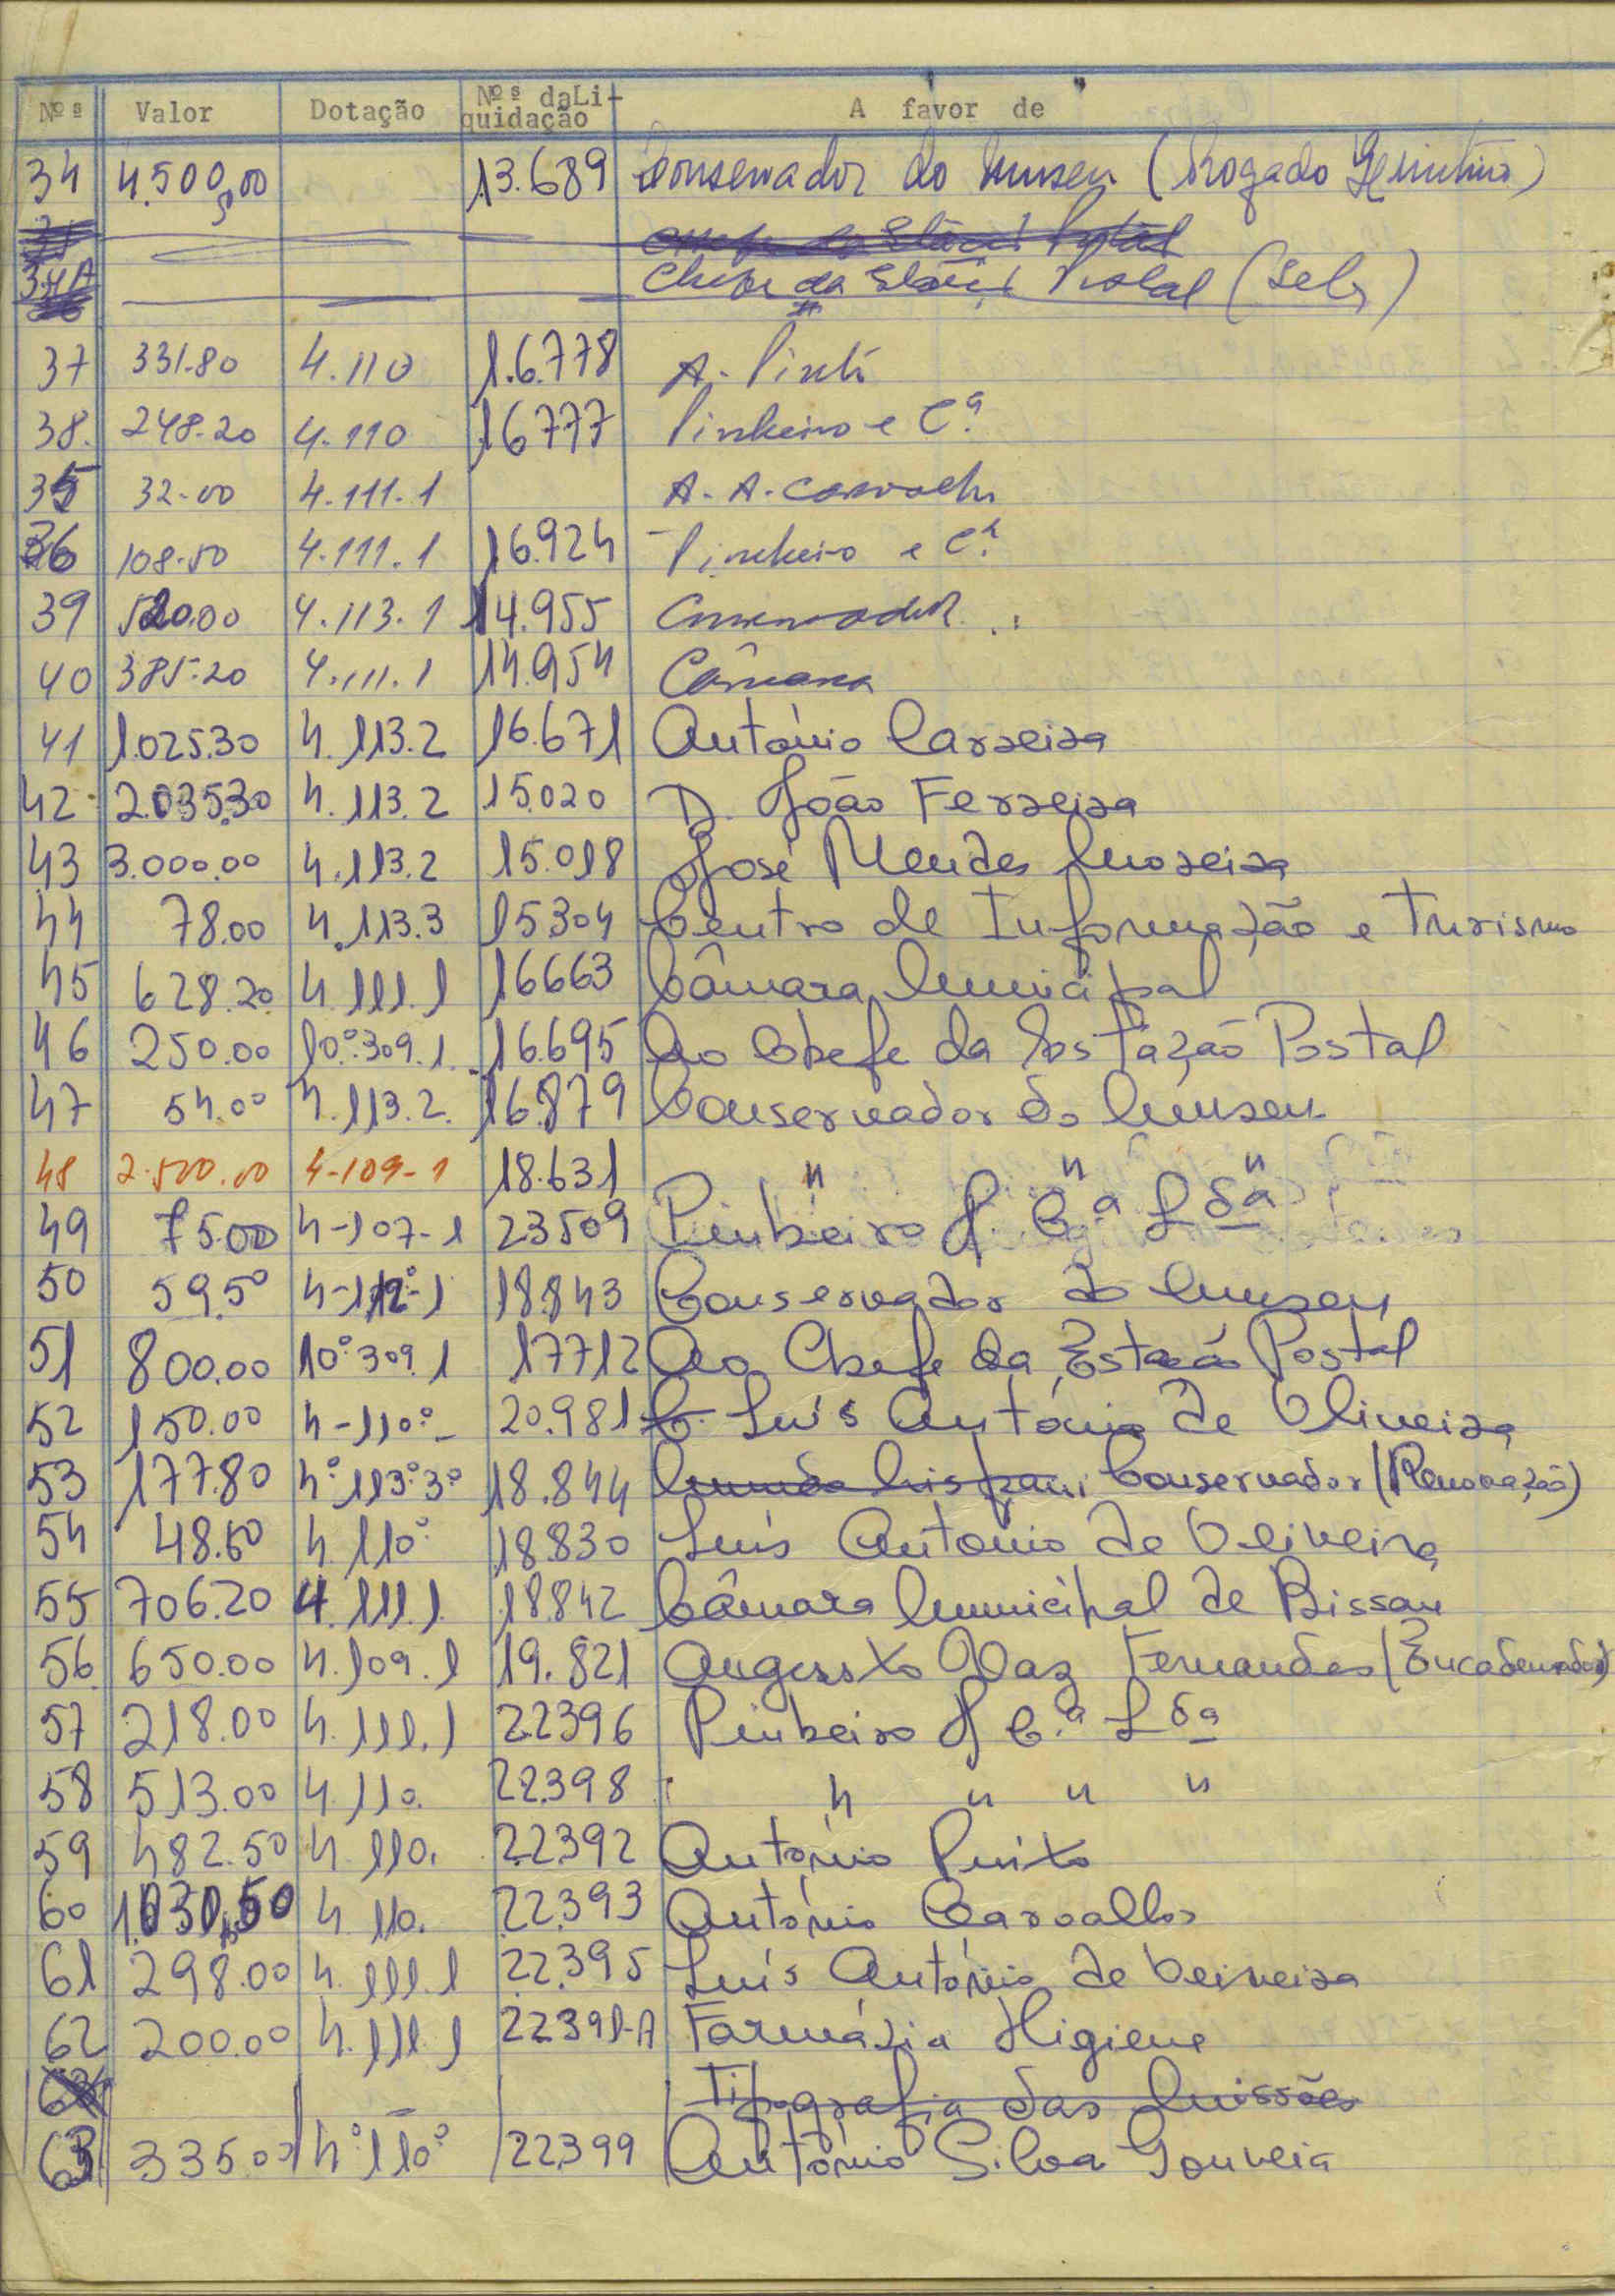 Nºs Valor Dotação Nºs daLiquidação A favor de
34 4.500,00 13.689 Conservador do Museu (Rogado
34A Chefe da Estação Postal (Selos)
37 331.80 4.110 16.778 A. Pinto
38. 248.20 4.110 16777 Pinheiro e Cª
35 32.00 4.111.1 A. A. Carvalho
36 108.50 4.111.1 16.924 Pinheiro e Cª
39 520.00 4.113.1 14.955 Conservador
40 385.20 4.111.1 14.954 Câmara
41 1.025.30 4.113.2 16.671 António Carreira
42 2.035.30 4.113.2 15.020 D. João Ferreira
43 3.000.00 4.113.2 15.018 José Mendes Moreira
44 78.00 4.113.3 15304 Centro de Informação e Turismo
45 628.20 4.111.1 16663 Câmara Municipal
46 250.00 10.º309.1 16.695 Ao Chefe da Estação Postal
47 54.00 4.113.2. 16.879 Conservador do Museu
48 2.500.00 4-109-1 18.631 " " "
49 75.00 4-107-1 23509 Pinheiro & Cª Ldª
50 59.50 4-112º-1 18.843 Conservador do Museu
51 800.00 10º309.1 17712 Ao Chefe da Estação Postal
52 150.00 4-110º- 20.981 Luís António de Oliveira
53 177.80 4º113º3º 18.844 Conservador (Renovação)
54 48.60 4.110º 18.830 Luís António de Oliveira
55 706.20 4.111.1 18.842 Câmara Municipal de Bissau
56 650.00 4.109.1 19.821 Augusto Vaz Fernandes (Encadernador)
57 218.00 4.111.1 22396 Pinheiro & C.ª Ldª
58 513.00 4.110. 22.398 " " " "
59 482.50 4.110. 22392 António Pinto
60 1.030,50 4 110. 22.393 António Carvalho
61 298.00 4.111.1 22.395 Luís António de Oliveira
62 200.00 4.111.1 22391-A Farmácia Higiene
63 Tipografia das Missões
63 335.00 4º110º 22399 António Silva Gouveia